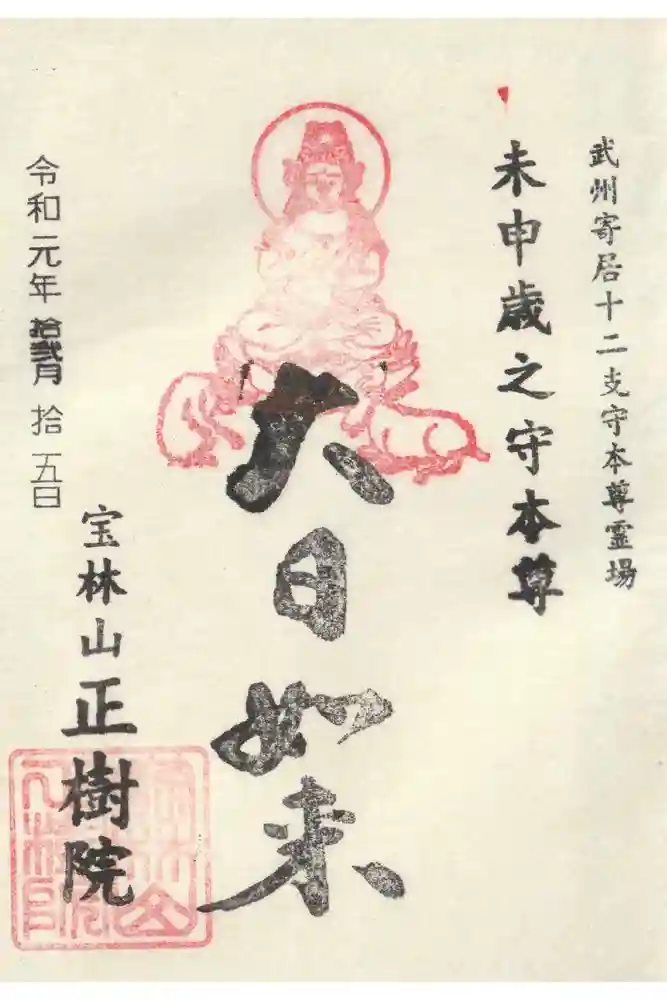 武州寄居十二支守本尊霊場
未申歳之守本尊
大日如来
宝林山正樹院
令和元年拾弐月拾五日